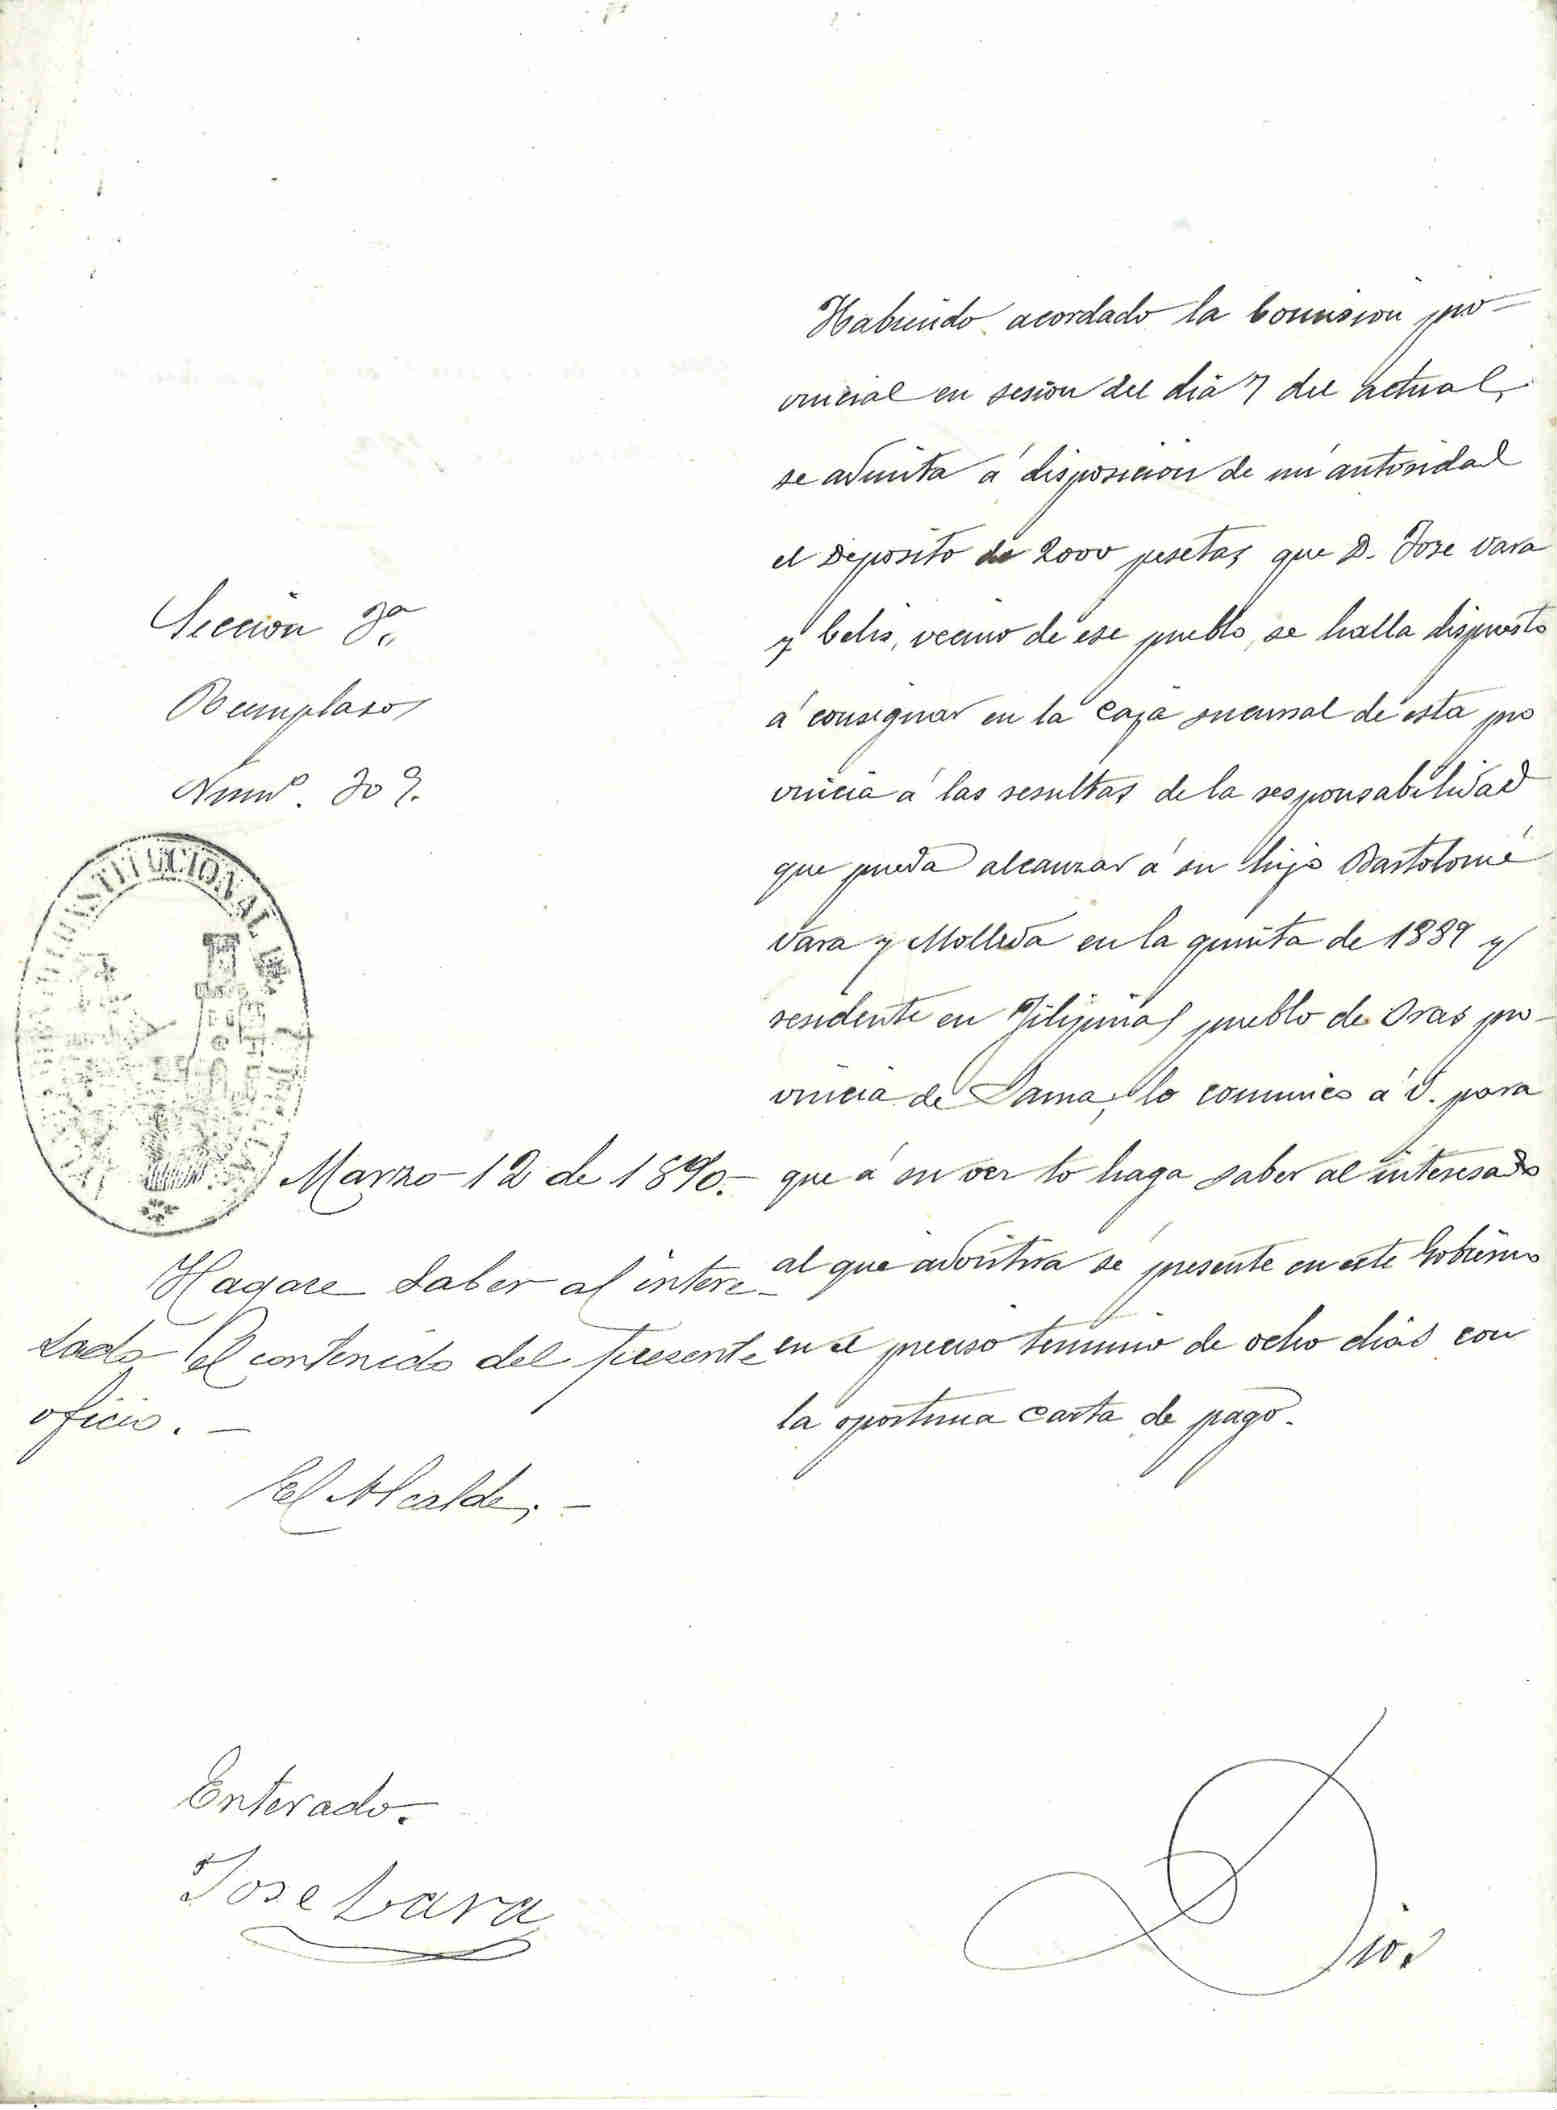 Sección 3ª
Reemplazos
Numº. 309.
CONSTITUCIONAL DE
Marzo 12 de 1890.-
Hagase saber al intere-
sado el contenido del presente
oficio. -
El Alcalde, -
Enterado.
Jose Vara
Habiendo acordado la Comision pro-
vincial en sesion del dia 7 del actual,
se admita á disposicion de mi autoridad
el deposito de 2000 pesetas que D. Jose Vara
y Celis, vecino de ese pueblo, se halla dispuesto
á consignar en la Caja sucursal de esta pro
vincia á las resultas de la responsabilidad
que pueda alcanzar á su hijo Bartolomé
Vara y Molleda en la quinta de 1889 y
residente en Filipinas pueblo de Oras pro-
vincia de Sama, lo comunico á V. para
que á su vez lo haga saber al interesado
al que advertira se presente en este Gobierno
en el preciso termino de ocho dias con
la oportuna carta de pago.
Dios